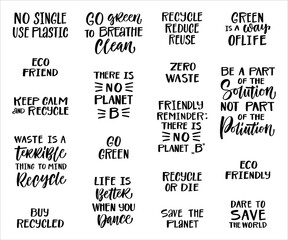 NO SINGLE
USE PLASTIC
ECO
FRIEND
KEEP CALM
AND RECYCLE
WASTE IS A
TERRIBLE
THING TO MIND
Recycle
BUY
RECYCLED
GO green
TO BREATHE
Clean
THERE IS
NO
PLANET
B
GO
GREEN
LIFE IS
Better
WHEN YOU
Dance
RECYCLE
REDUCE
REUSE
ZERO
WASTE
FRIENDLY
REMINDER:
THERE IS
NO
PLANET „B"
RECYCLE
OR DIE
SAVE THE
PLANET
GREEN
IS A way
OF LIFE
BE A PART
OF THE
Solution
NOT PART
OF THE
Pollution
ECO
FRIENDLY
DARE TO
SAVE
THE WORLD